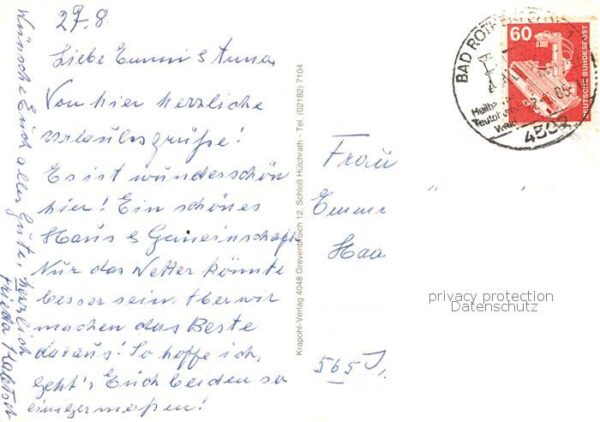 27.8
Liebe Emmi & Anna,
Von hier herzliche
Urlaubsgrüße!
Es ist wunderschön
hier! Ein schönes
Haus & Gemeinschaft
Nur das Wetter könnte
besser sein. Aber wir
machen das Beste
daraus! So hoffe ich,
geht's Euch beiden so
einigermaßen!
Wünsche Euch alles Gute, herzlich
Frieda
Krapohl-Verlag 4048 Grevenbroich 12, Schloß Hülchrath - Tel. (02182) 7104
60
DEUTSCHE BUNDESPOST
BAD
4502
Frau
Emme
Haa
565
privacy protection
Datenschutz